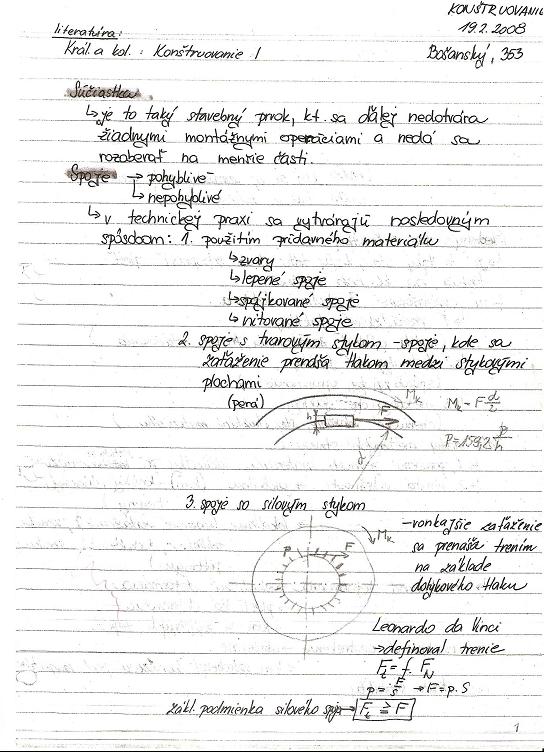 KONŠTRUOVANIE
19.2.2008
Bošanský, 353
literatúra:
Král a kol.: Konštruovanie I
Súčiastka
↳ je to taký stavebný prvok, kt. sa ďalej nedotvára
žiadnymi montážnymi operáciami a nedá sa
rozoberať na menšie časti.
Spoje → pohyblivé
↳ nepohyblivé
↳ v technickej praxi sa vytvárajú nasledovným
spôsobom: 1. použitím prídavného materiálu
↳ zvary
↳ lepené spoje
↳ spájkované spoje
↳ nitované spoje
2. spoje s tvarovým stykom - spoje, kde sa
zaťaženie prenáša tlakom medzi stykovými
plochami
(perá)
h
F
Mk
d
Mk = F d/2
3. spoje so silovým stykom
P
F
Mk
- vonkajšie zaťaženie
sa prenáša trením
na základe
dotykového tlaku
Leonardo da Vinci
→ definoval trenie
Ft = f. FN
p = F/S → F = p. S
zákl. podmienka silového spoja → Ft ≥ F
1